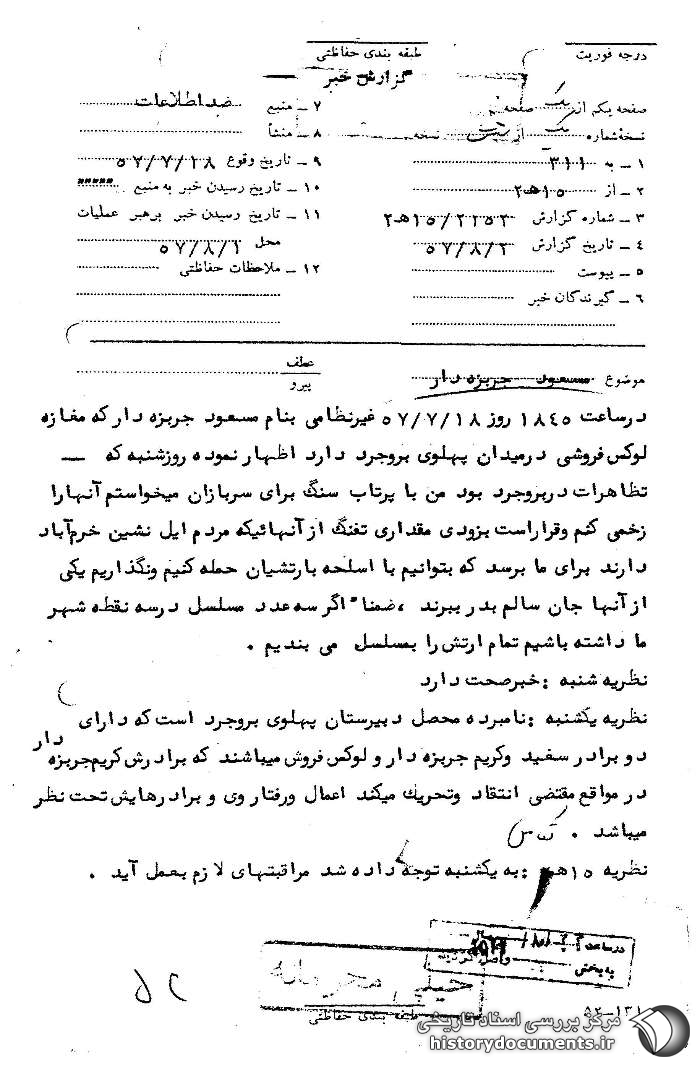 درجه فوریت
طبقه بندی حفاظتی
گزارش خبر
صفحه یکم از یک صفحه
نسخه شماره یک از نسخه
۱ ـ به ۳۱۱
۲ ـ از ۱۵هـ۲
۳ ـ شماره گزارش ۱۵/۲۱۵۳هـ۲
۴ ـ تاریخ گزارش ۵۷/۸/۲
۵ ـ پیوست
۶ ـ گیرندگان خبر
۷ ـ منبع ضداطلاعات
۸ ـ منشأ
۹ ـ تاریخ وقوع ۵۷/۷/۱۸
۱۰ ـ تاریخ رسیدن خبر به منبع """""
۱۱ ـ تاریخ رسیدن خبر برهبر عملیات
محل ۵۷/۸/۱
۱۲ ـ ملاحظات حفاظتی
موضوع مسعود جربزه دار
عطف
پیرو
درساعت ۱۸٤۵ روز ۵۷/۷/۱۸ غیرنظامی بنام مسعود جربزه دار که مغازه
لوکس فروشی درمیدان پهلوی بروجرد دارد اظهار نموده روزشنبه که ـــ
تظاهرات دربروجرد بود من با پرتاب سنگ برای سربازان میخواستم آنهارا
زخمی کنم وقراراست بزودی مقداری تفنگ از آنهائیکه مردم ایل نشین خرم‌آباد
دارند برای ما برسد که بتوانیم با اسلحه بارتشیان حمله کنیم ونگذاریم یکی
از آنها جان سالم بدر ببرند ، ضمنا" اگر سه عدد مسلسل درسه نقطه شهر
ما داشته باشیم تمام ارتش را بمسلسل می بندیم .
نظریه شنبه : خبرصحت دارد
نظریه یکشنبه : نامبرده محصل دبیرستان پهلوی بروجرد است که دارای
دو برادر سفید وکریم جربزه دار و لوکس فروش میباشند که برادرش کریم جربزه دار
در مواقع مقتضی انتقاد وتحریك میکند اعمال ورفتار وی و برادرهایش تحت نظر
میباشد .
نظریه ۱۵هـ۲ : به یکشنبه توجه داده شد مراقبتهای لازم بعمل آید .
درساعت
به بخش واصل گردید
خیلی محرمانه
طبقه بندی حفاظتی
۵۲-۱۳۱
مرکز بررسی اسناد تاریخی
historydocuments.ir